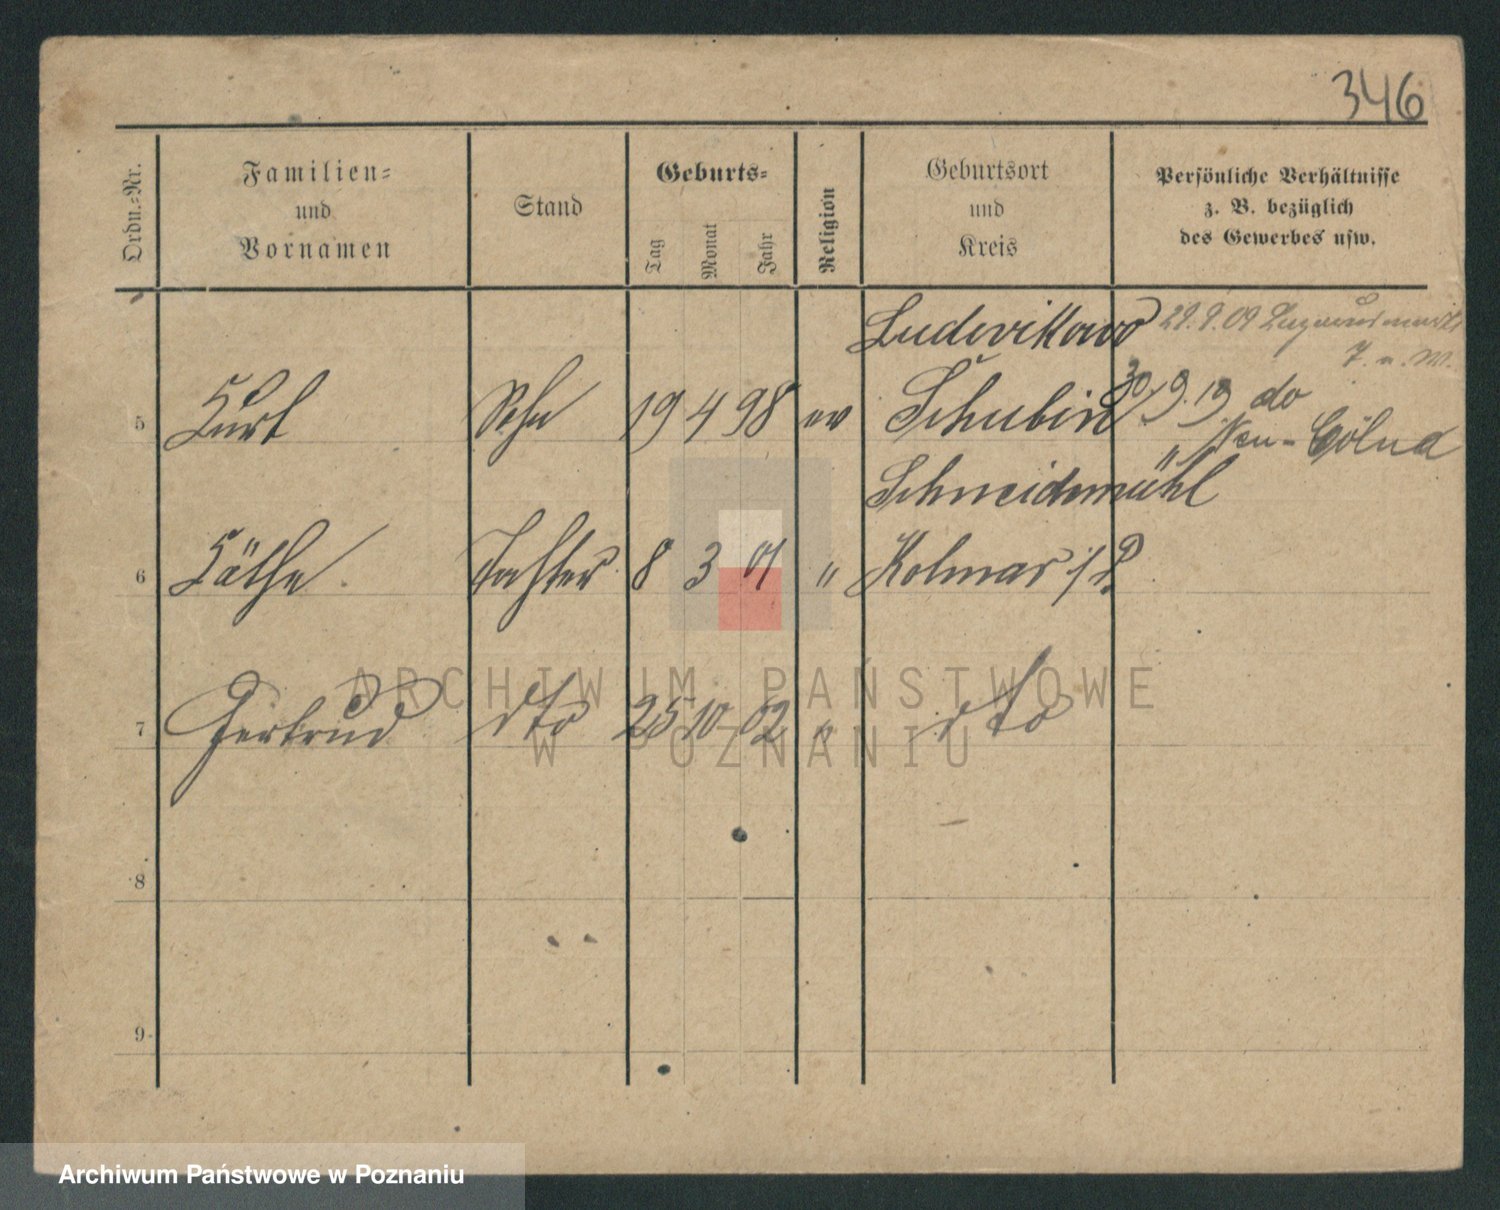 346
Ordn.-Nr.
Familien-
und
Vornamen
Stand
Geburts-
Tag
Monat
Jahr
Religion
Geburtsort
und
Kreis
Persönliche Verhältnisse
z. B. bezüglich
des Gewerbes usw.
Ludovikowo 29.9.09
5 Kurt Sohn 19 4 98 ev Schubin 30/9.19 do
Neu-Cölnd
Schneidemühl
6 Käthe Tochter 8 3 01 " Kolmar i/P.
7 Gertrud dto 25 10 02 " dto
8
9
ARCHIWUM PAŃSTWOWE
W POZNANIU
Archiwum Państwowe w Poznaniu